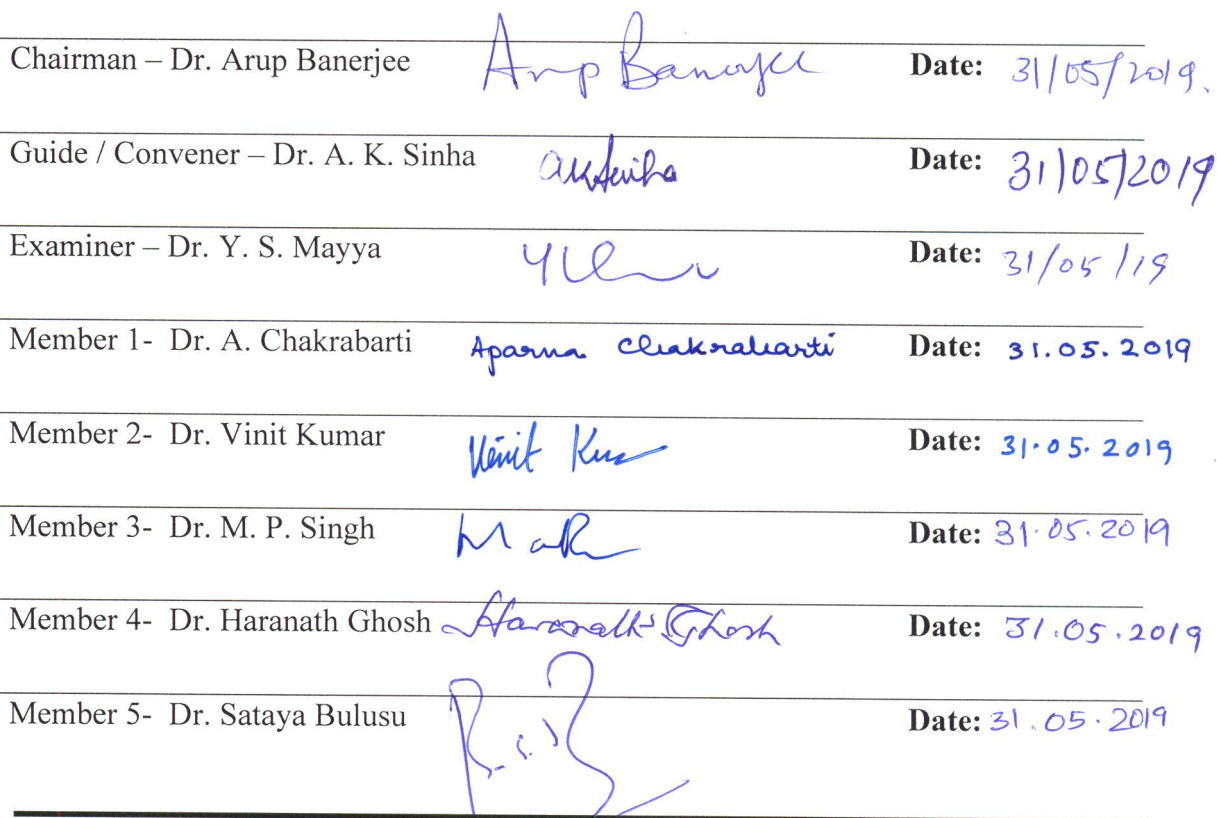 Chairman – Dr. Arup Banerjee Arup Banerjee Date: 31/05/2019.
Guide / Convener – Dr. A. K. Sinha aksinha Date: 31/05/2019
Examiner – Dr. Y. S. Mayya Date: 31/05/19
Member 1- Dr. A. Chakrabarti Aparna Chakrabarti Date: 31.05.2019
Member 2- Dr. Vinit Kumar Vinit Date: 31.05.2019
Member 3- Dr. M. P. Singh Date: 31.05.2019
Member 4- Dr. Haranath Ghosh Haranath Ghosh Date: 31.05.2019
Member 5- Dr. Sataya Bulusu Date: 31.05.2019